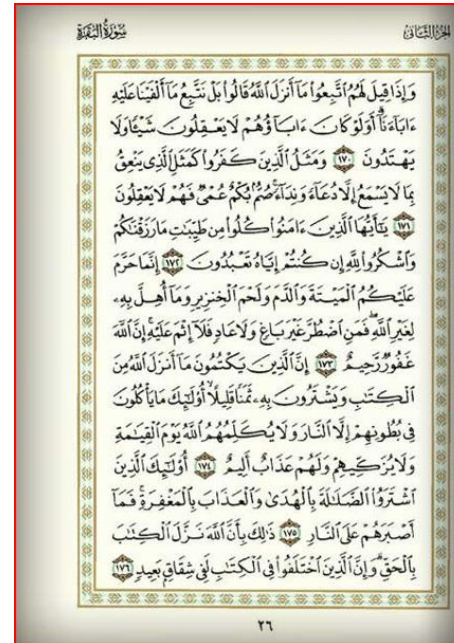 الجزء الثاني
سورة البقرة
وَإِذَا قِيلَ لَهُمُ ٱتَّبِعُوا۟ مَآ أَنزَلَ ٱللَّهُ قَالُوا۟ بَلْ نَتَّبِعُ مَآ أَلْفَيْنَا عَلَيْهِ
ءَابَآءَنَآ ۗ أَوَلَوْ كَانَ ءَابَآؤُهُمْ لَا يَعْقِلُونَ شَيْـًٔا وَلَا
يَهْتَدُونَ ١٧٠ وَمَثَلُ ٱلَّذِينَ كَفَرُوا۟ كَمَثَلِ ٱلَّذِى يَنْعِقُ
بِمَا لَا يَسْمَعُ إِلَّا دُعَآءً وَنِدَآءً ۚ صُمٌّۢ بُكْمٌ عُمْىٌ فَهُمْ لَا يَعْقِلُونَ
١٧١ يَٰٓأَيُّهَا ٱلَّذِينَ ءَامَنُوا۟ كُلُوا۟ مِن طَيِّبَٰتِ مَا رَزَقْنَٰكُمْ
وَٱشْكُرُوا۟ لِلَّهِ إِن كُنتُمْ إِيَّاهُ تَعْبُدُونَ ١٧٢ إِنَّمَا حَرَّمَ
عَلَيْكُمُ ٱلْمَيْتَةَ وَٱلدَّمَ وَلَحْمَ ٱلْخِنزِيرِ وَمَآ أُهِلَّ بِهِۦ
لِغَيْرِ ٱللَّهِ ۖ فَمَنِ ٱضْطُرَّ غَيْرَ بَاغٍ وَلَا عَادٍ فَلَآ إِثْمَ عَلَيْهِ ۚ إِنَّ ٱللَّهَ
غَفُورٌ رَّحِيمٌ ١٧٣ إِنَّ ٱلَّذِينَ يَكْتُمُونَ مَآ أَنزَلَ ٱللَّهُ مِنَ
ٱلْكِتَٰبِ وَيَشْتَرُونَ بِهِۦ ثَمَنًا قَلِيلًا ۙ أُو۟لَٰٓئِكَ مَا يَأْكُلُونَ
فِى بُطُونِهِمْ إِلَّا ٱلنَّارَ وَلَا يُكَلِّمُهُمُ ٱللَّهُ يَوْمَ ٱلْقِيَٰمَةِ
وَلَا يُزَكِّيهِمْ وَلَهُمْ عَذَابٌ أَلِيمٌ ١٧٤ أُو۟لَٰٓئِكَ ٱلَّذِينَ
ٱشْتَرَوُا۟ ٱلضَّلَٰلَةَ بِٱلْهُدَىٰ وَٱلْعَذَابَ بِٱلْمَغْفِرَةِ ۚ فَمَآ
أَصْبَرَهُمْ عَلَى ٱلنَّارِ ١٧٥ ذَٰلِكَ بِأَنَّ ٱللَّهَ نَزَّلَ ٱلْكِتَٰبَ
بِٱلْحَقِّ ۗ وَإِنَّ ٱلَّذِينَ ٱخْتَلَفُوا۟ فِى ٱلْكِتَٰبِ لَفِى شِقَاقٍۭ بَعِيدٍ ١٧٦
٢٦